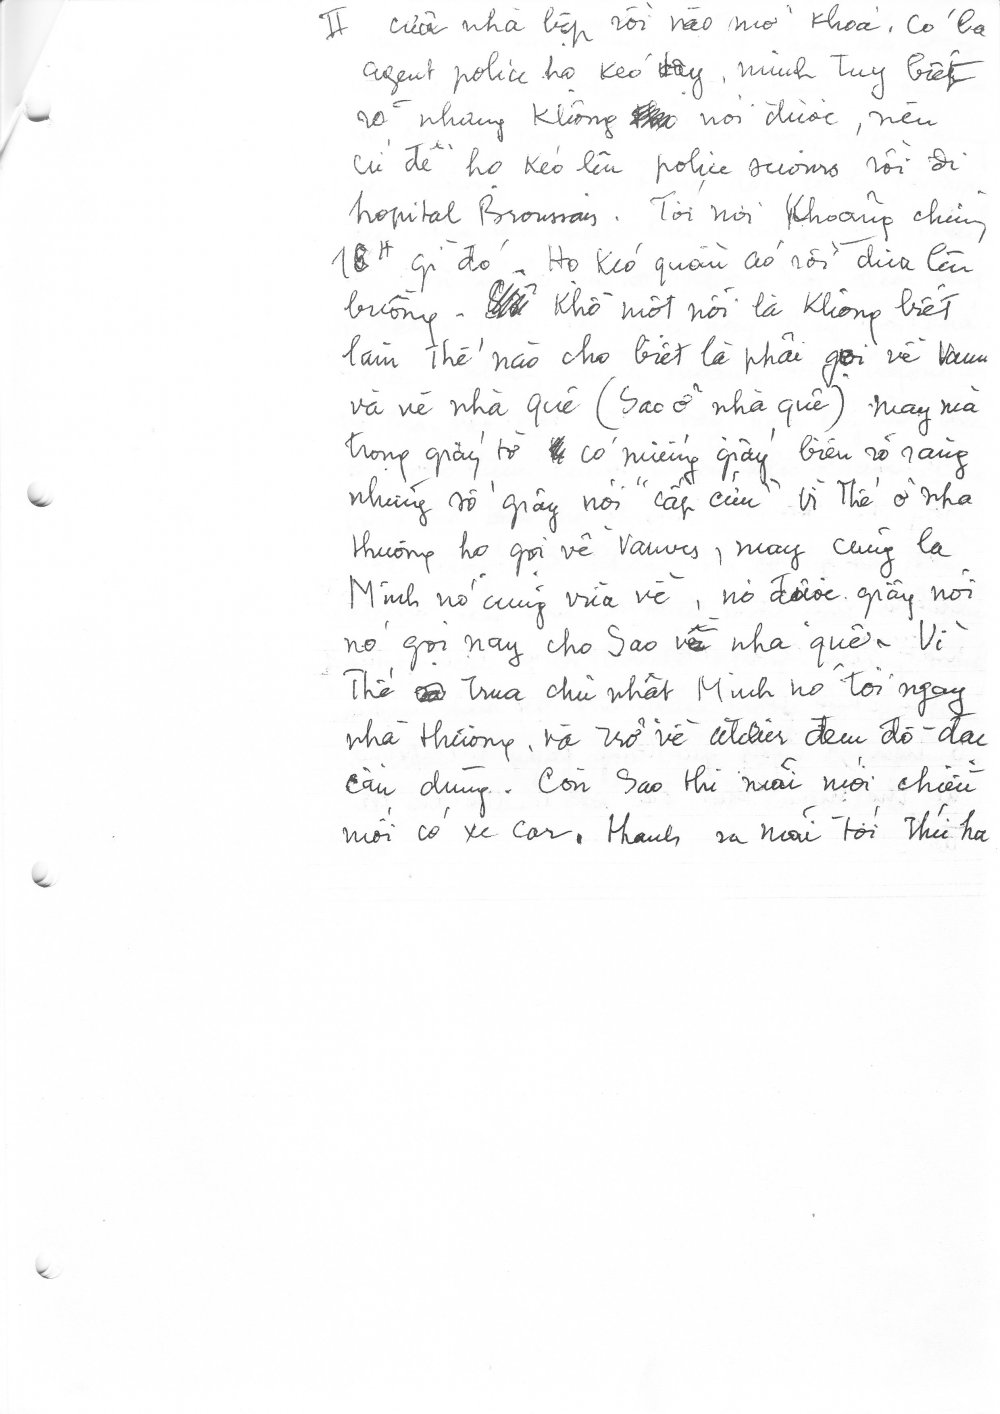 II cửa nhà bếp rồi vào mở khoá. Có ba
agent police họ kéo dậy, mình tuy biết
rõ nhưng không nói được, nên
cứ để họ kéo lên police secours rồi đi
hopital Broussais. Tới nơi khoảng chừng
18H gì đó. Họ kéo quần áo rồi đưa lên
buồng. Khổ một nỗi là không biết
làm thế nào cho biết là phải gọi về Vanves
và về nhà quê (Sao ở nhà quê) may mà
trong giấy tờ có miếng giấy biên rõ ràng
những số giây nói "cấp cứu" vì thế ở nhà
thương họ gọi về Vanves, may cũng là
Minh nó cũng vừa về, nó được giây nói
nó gọi ngay cho Sao về nhà quê. Vì
thế trưa chủ nhật Minh nó tới ngay
nhà thương, và trở về atelier đem đồ đạc
cần dùng. Còn Sao thì mãi mới chiều
mới có xe car. Thành ra mãi tới thứ ha